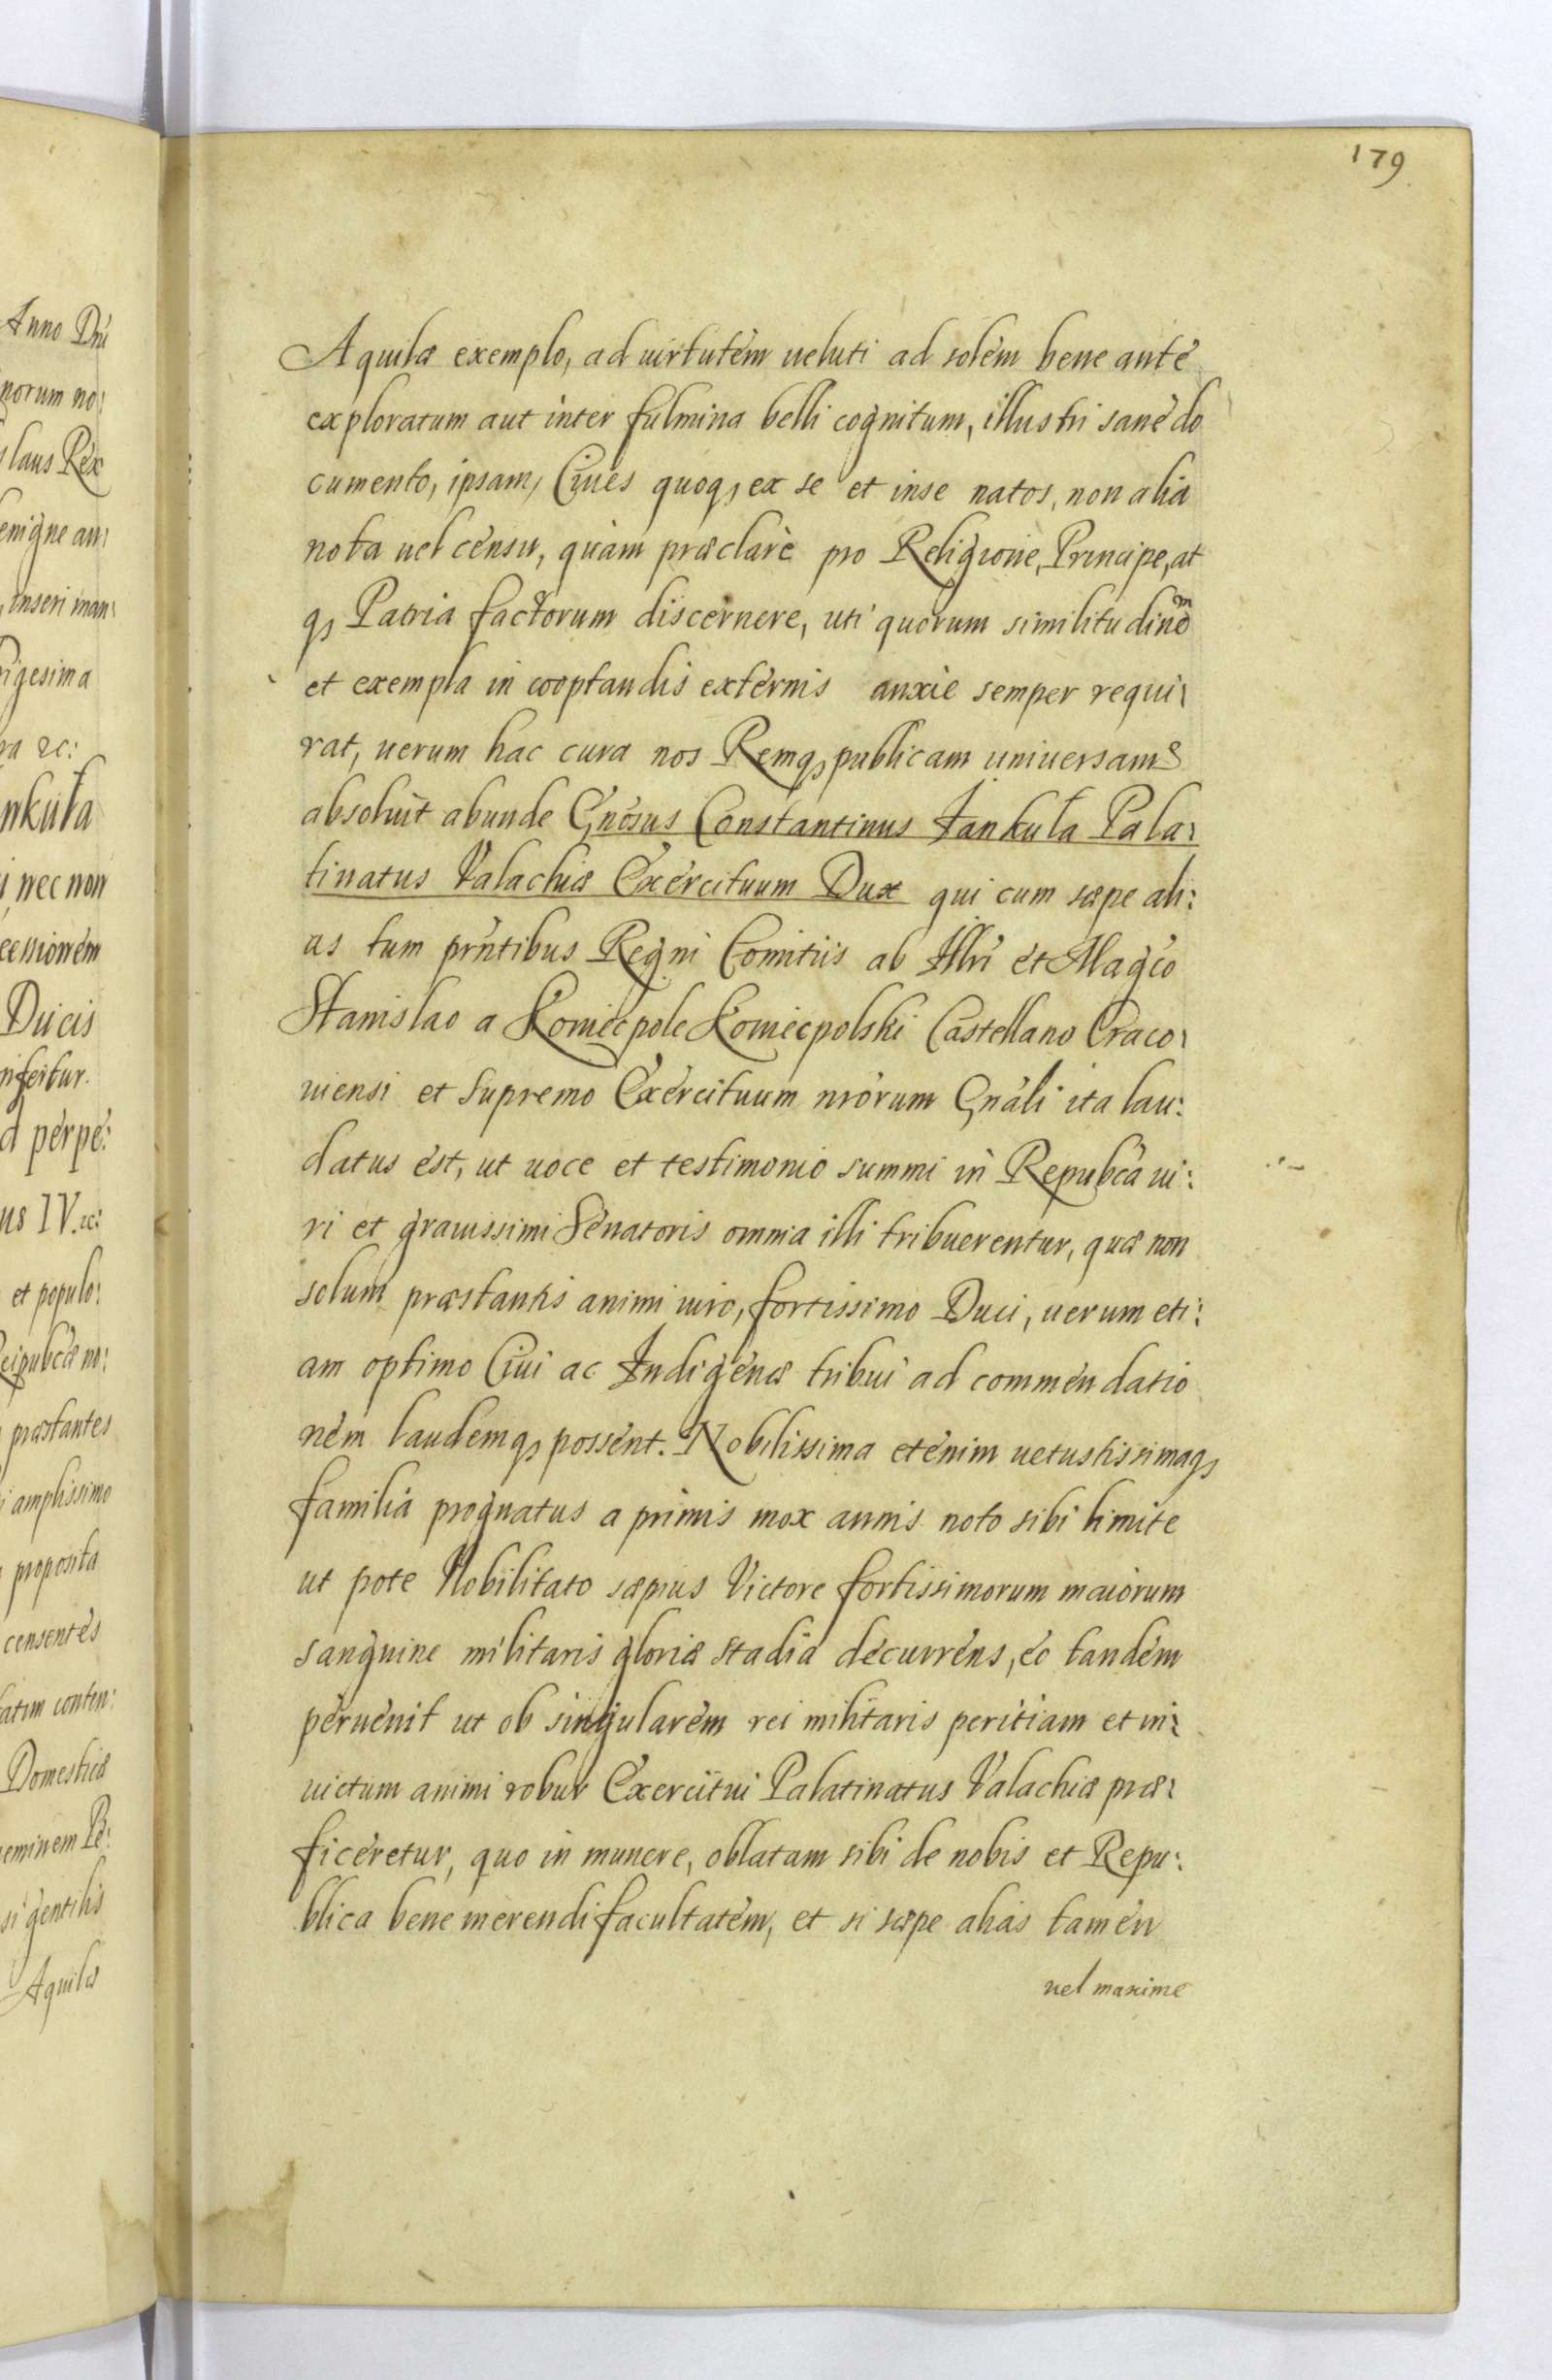 179
Anno Dni
norum no:
slaus Rex
enigne an:
inseri man:
rigesima
ra &c:
nkuła
i nec non
cessionem
Ducis
nfertur.
d perpe:
us IV. &c:
et populo:
Reipubcæ no:
præstantes
i amplissimo
proposita
censentes
tatim conten:
Domesticæ
neminem Pe:
si gentilis
Aquilæ
Aquilæ exemplo, ad uirtutem ueluti ad solem bene ante
exploratum aut inter fulmina belli cognitum, illustri sane do
cumento, ipsam, Ciues quoq, ex se et inse natos, non alia
nota uel censu, quàm præclarè pro Religione, Principe, at
q, Patria factorum discernere, uti quorum similitudinem
et exempla in cooptandis externis anxie semper requi:
rat, uerum hac cura nos Remq, publicam uniuersam
absoluit abunde Gnosus Constantinus Jankuła Pala:
tinatus Valachiæ Exercituum Dux qui cum sæpe ali:
as tum prntibus Regni Comitiis ab Illri et Magco
Stanislao a Koniecpole Koniecpolski Castellano Craco:
uiensi et Supremo Exercituum nrorum Gnali ita lau:
datus est, ut uoce et testimonio summi in Repubca ui:
ri et grauissimi Senatoris omnia illi tribuerentur, quæ non
solum præstantis animi uiro, fortissimo Duci, uerum eti:
am optimo Ciui ac Indigenæ tribui ad commendatio
nem laudemq, possent. Nobilissima etenim uetustissimaq,
familia prognatus a primis mox annis noto sibi limite
ut pote Nobilitato sæpius Victore fortissimorum maiorum
sanguine militaris gloriæ stadia decurrens, eo tandem
peruenit ut ob singularem rei militaris peritiam et in:
uictum animi robur Exercitui Palatinatus Valachiæ præ:
ficeretur, quo in munere, oblatam sibi de nobis et Repu:
blica bene merendi facultatem, et si sæpe alias tamen
uel maxime